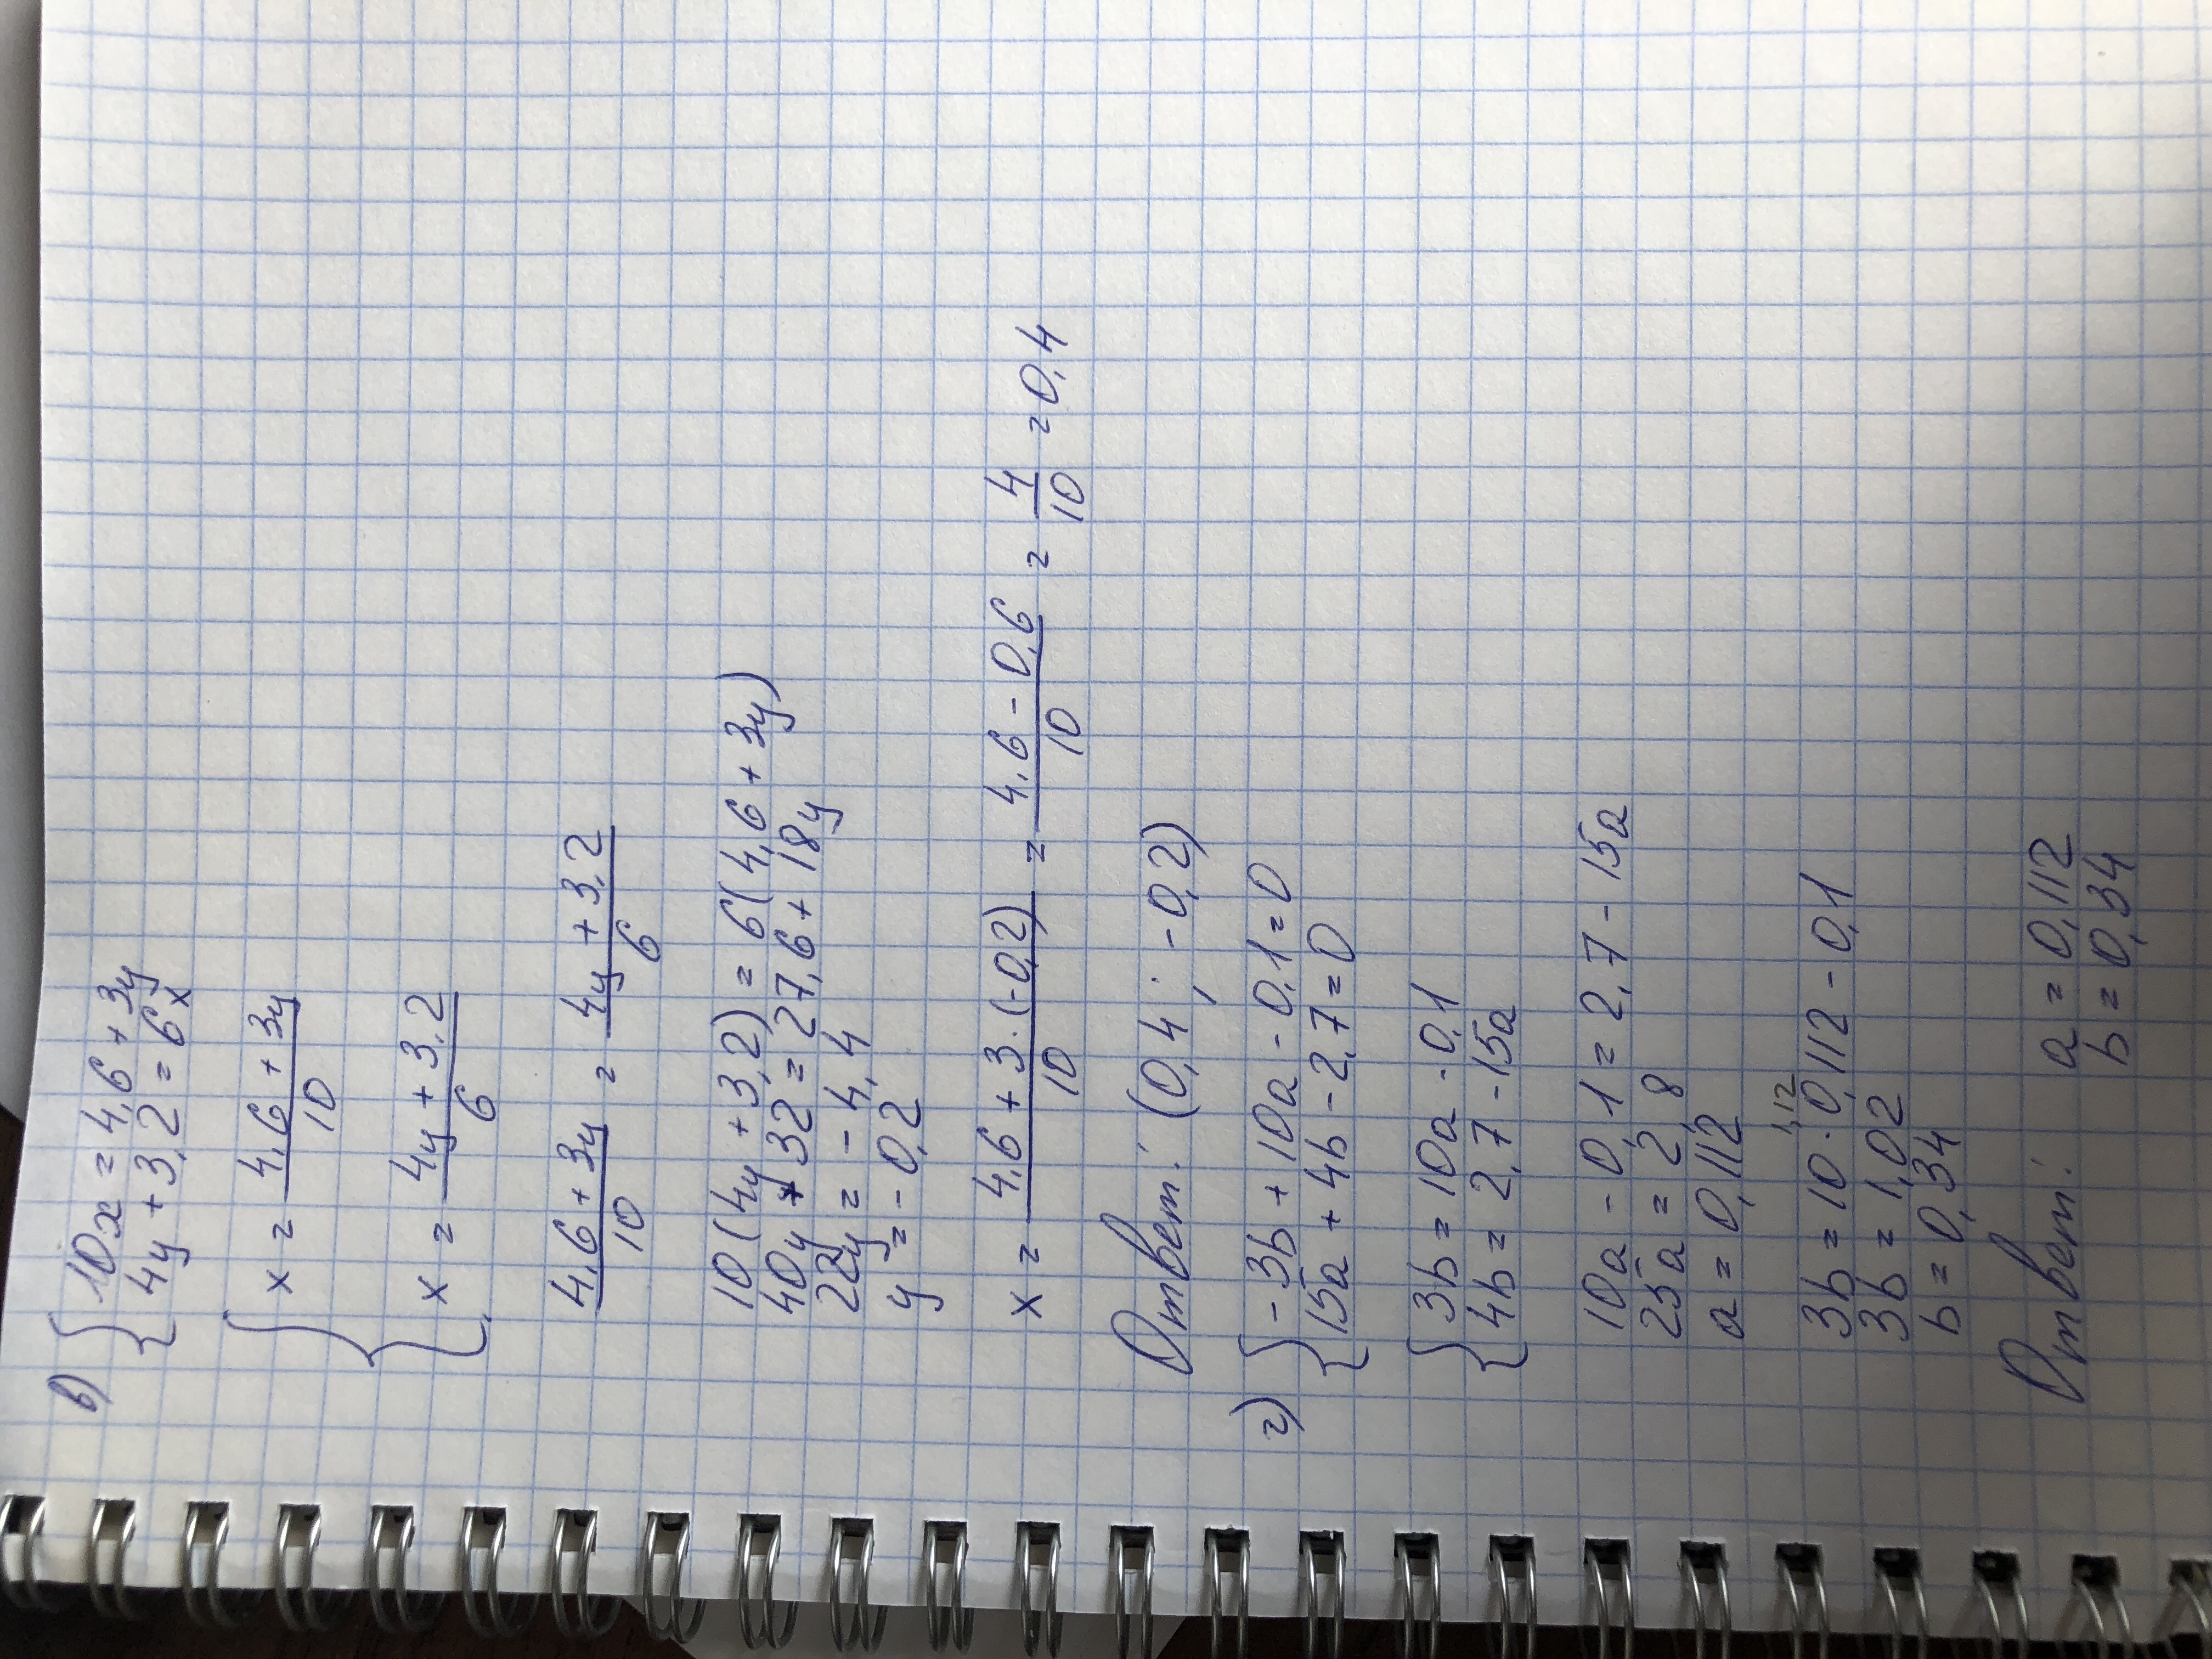 в) { 10x = 4,6 + 3y
4y + 3,2 = 6x
{ x = (4,6 + 3y)/10
x = (4y + 3,2)/6
(4,6 + 3y)/10 = (4y + 3,2)/6
10(4y + 3,2) = 6(4,6 + 3y)
40y + 32 = 27,6 + 18y
22y = - 4,4
y = - 0,2
x = (4,6 + 3·(-0,2))/10 = (4,6 - 0,6)/10 = 4/10 = 0,4
Ответ: (0,4 ; -0,2)
г) { -3b + 10a - 0,1 = 0
15a + 4b - 2,7 = 0
{ 3b = 10a - 0,1
4b = 2,7 - 15a
10a - 0,1 = 2,7 - 15a
25a = 2,8
a = 0,112
1,12
3b = 10 · 0,112 - 0,1
3b = 1,02
b = 0,34
Ответ: a = 0,112
b = 0,34